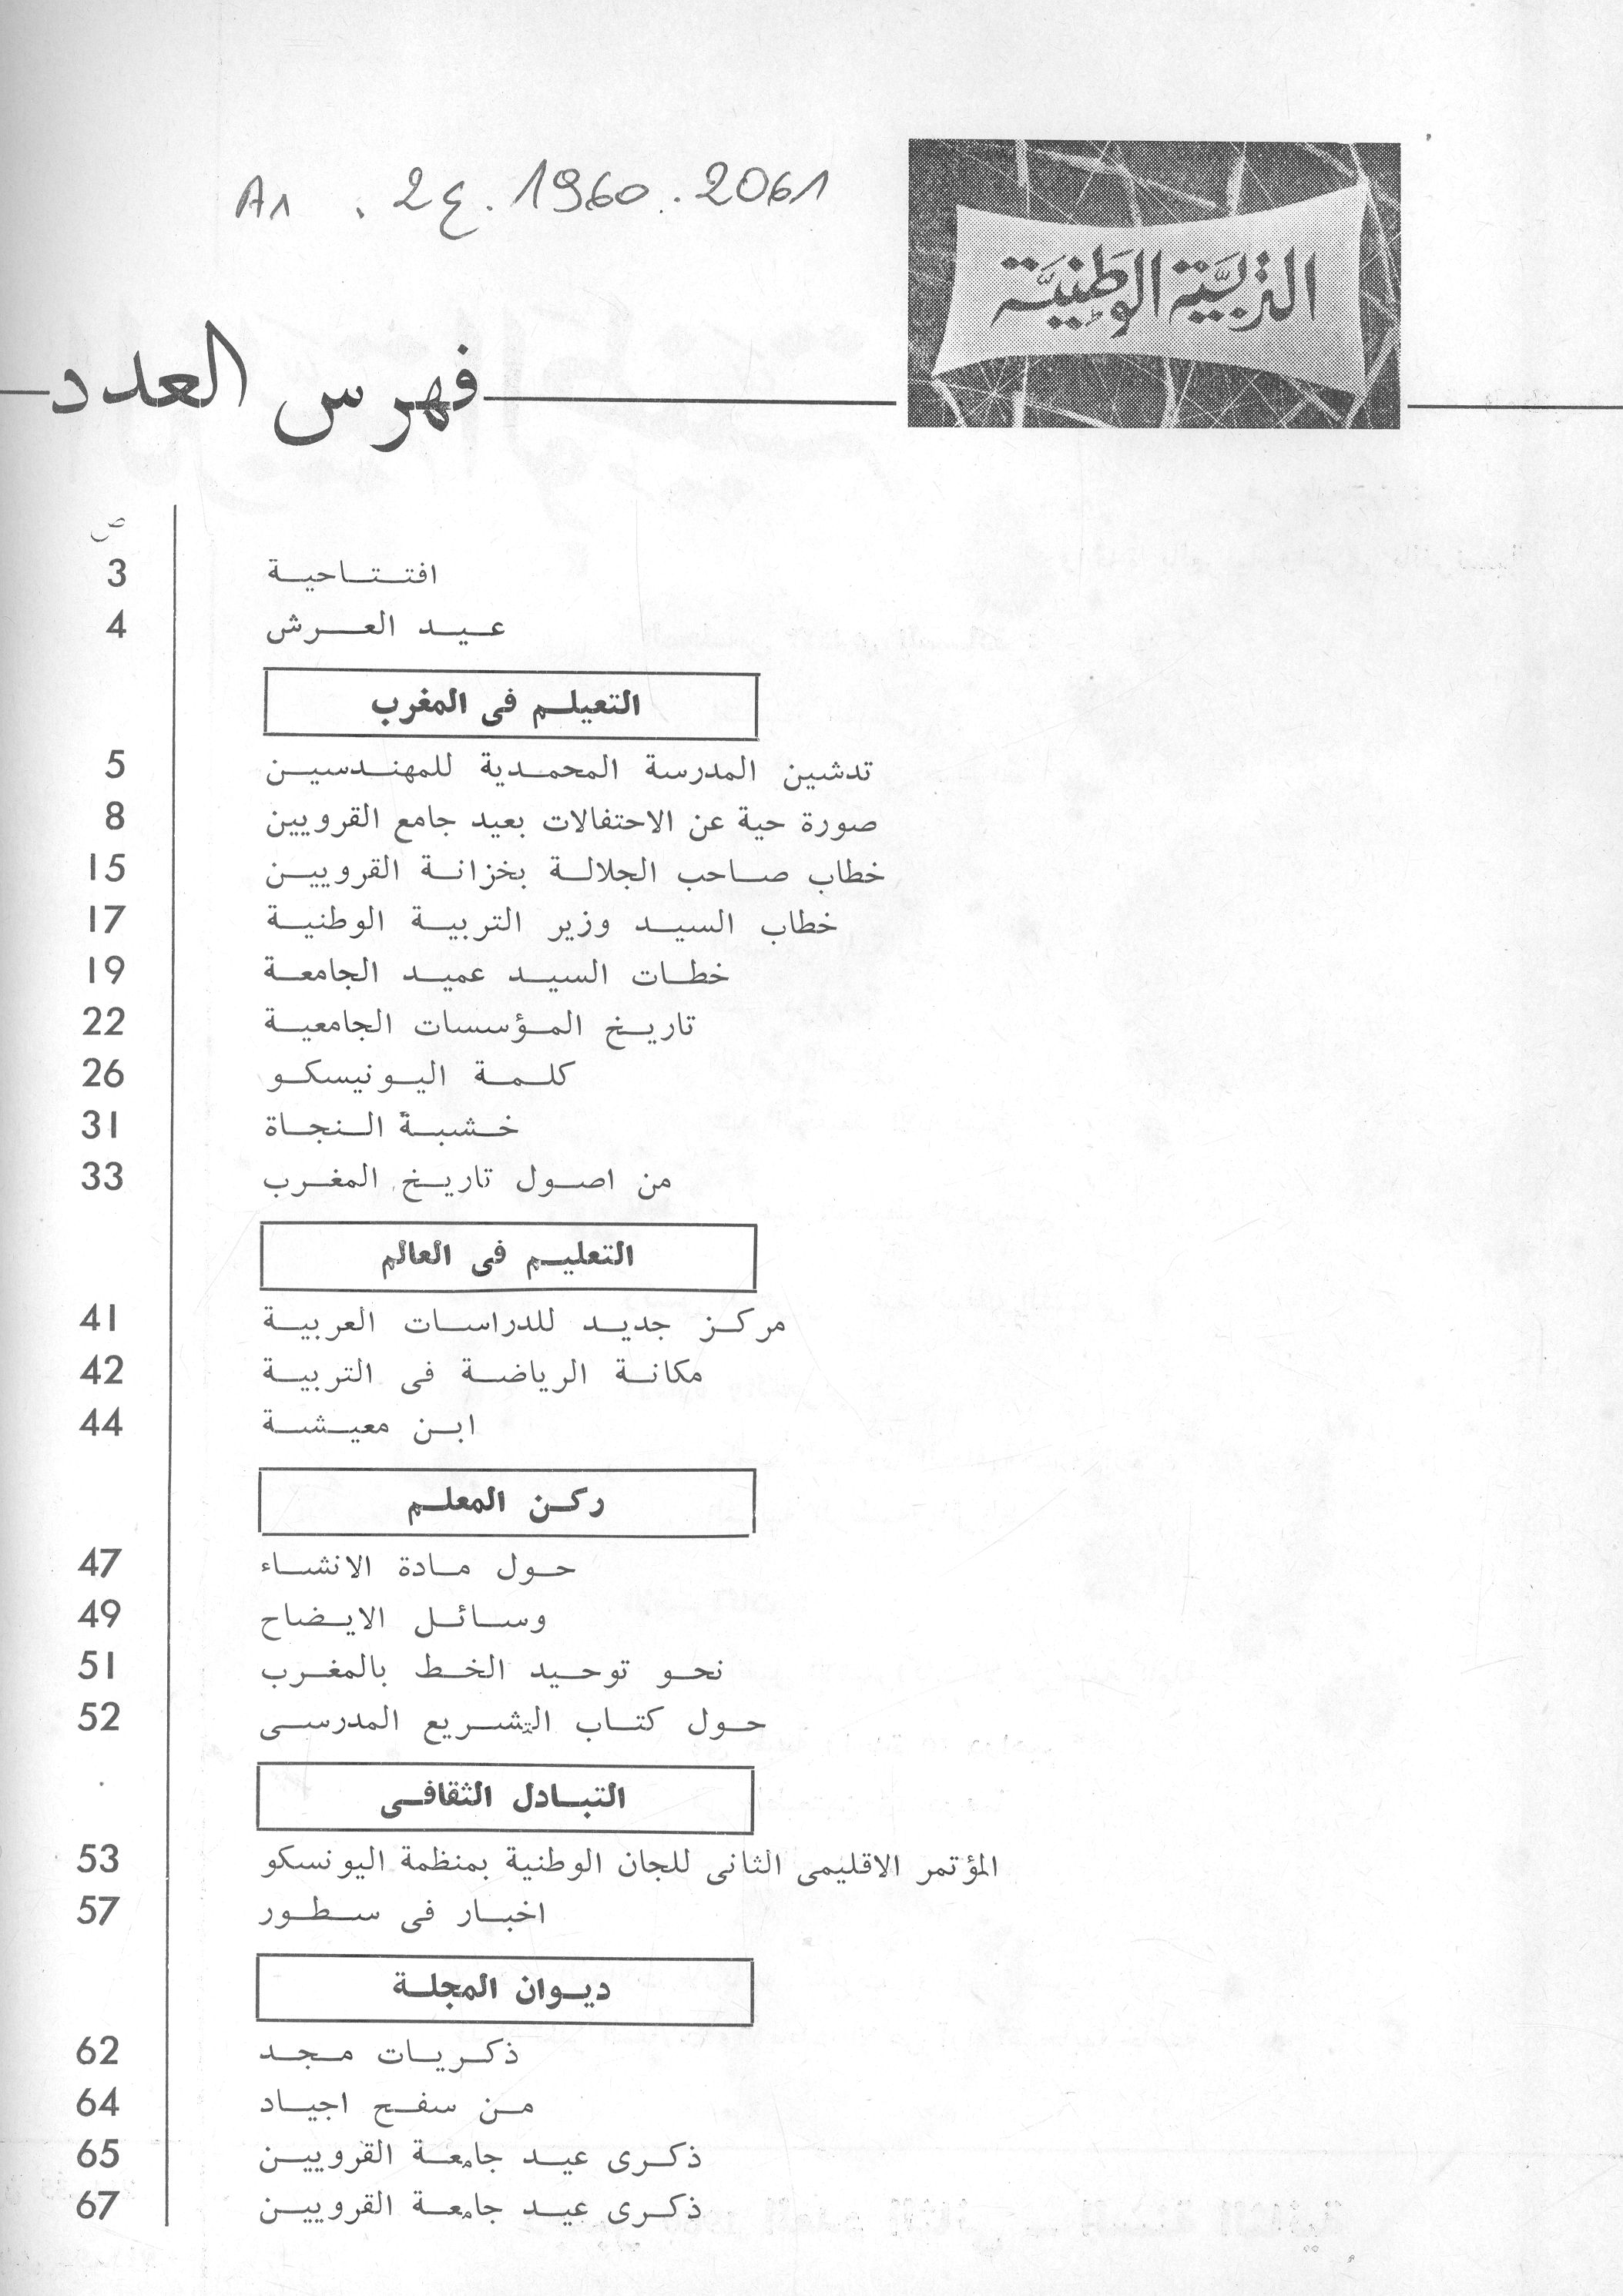 A1 . 2ع . 1960 . 2061
التربية الوطنية
فهرس العدد
ص
افتتاحية 3
عيد العرش 4
التعيلم فى المغرب
تدشين المدرسة المحمدية للمهندسين 5
صورة حية عن الاحتفالات بعيد جامع القرويين 8
خطاب صاحب الجلالة بخزانة القرويين 15
خطاب السيد وزير التربية الوطنية 17
خطات السيد عميد الجامعة 19
تاريخ المؤسسات الجامعية 22
كلمة اليونيسكو 26
خشبة النجاة 31
من اصول تاريخ المغرب 33
التعليم فى العالم
مركز جديد للدراسات العربية 41
مكانة الرياضة فى التربية 42
ابن معيشة 44
ركن المعلم
حول مادة الانشاء 47
وسائل الايضاح 49
نحو توحيد الخط بالمغرب 51
حول كتاب التشريع المدرسى 52
التبادل الثقافى
المؤتمر الاقليمى الثانى للجان الوطنية بمنظمة اليونسكو 53
اخبار فى سطور 57
ديوان المجلة
ذكريات مجد 62
من سفح اجياد 64
ذكرى عيد جامعة القرويين 65
ذكرى عيد جامعة القرويين 67